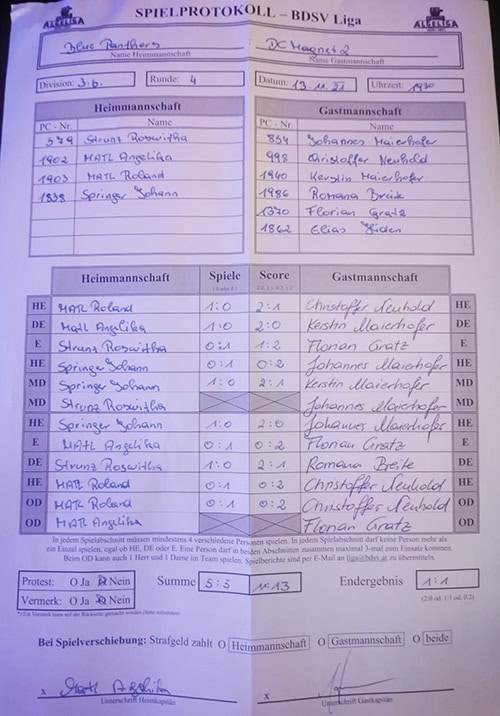 SPIELPROTOKOLL – BDSV Liga
Blue Panthers DC Magnet 2
Name Heimmannschaft Name Gastmannschaft
Division: 3.b. Runde: 4 Datum: 13.11.21 Uhrzeit: 1930
Heimmannschaft Gastmannschaft
PC - Nr. Name PC - Nr. Name
579 Strunz Roswitha 854 Johannes Maierhofer
1902 MATL Angelika 998 Christoffer Neuhold
1903 MATL Roland 1940 Kerstin Maierhofer
1838 Springer Johann 1986 Romana Breite
1370 Florian Gratz
1862 Elias
Heimmannschaft Spiele Score Gastmannschaft
HE MATL Roland 1:0 2:1 Christoffer Neuhold HE
DE Matl Angelika 1:0 2:0 Kerstin Maierhofer DE
E Strunz Roswitha 0:1 1:2 Florian Gratz E
HE Springer Johann 0:1 0:2 Johannes Maierhofer HE
MD Springer Johann 1:0 2:1 Kerstin Maierhofer MD
MD Strunz Roswitha Johannes Maierhofer MD
HE Springer Johann 1:0 2:0 Johannes Maierhofer HE
E MATL Angelika 0:1 0:2 Florian Gratz E
DE Strunz Roswitha 1:0 2:1 Romana Breite DE
HE MATL Roland 0:1 0:2 Christoffer Neuhold HE
OD MATL Roland 0:1 0:2 Christoffer Neuhold OD
OD MATL Angelika Florian Gratz OD
In jedem Spielabschnitt müssen mindestens 4 verschiedene Personen spielen. In jedem Spielabschnitt darf keine Person mehr als
ein Einzel spielen, egal ob HE, DE oder E. Eine Person darf in beiden Abschnitten zusammen maximal 3-mal zum Einsatz kommen.
Beim OD kann auch 1 Herr und 1 Dame im Team spielen. Spielberichte sind per E-Mail an liga@bdsv.at zu übermitteln.
Protest: O Ja O Nein Summe 5:5 11:13 Endergebnis 1:1
Vermerk: O Ja O Nein (2:0 od. 1:1 od. 0:2)
Bei Spielverschiebung: Strafgeld zahlt O Heimmannschaft O Gastmannschaft O beide
x Matl Angelika x
Unterschrift Heimkapitän Unterschrift Gastkapitän